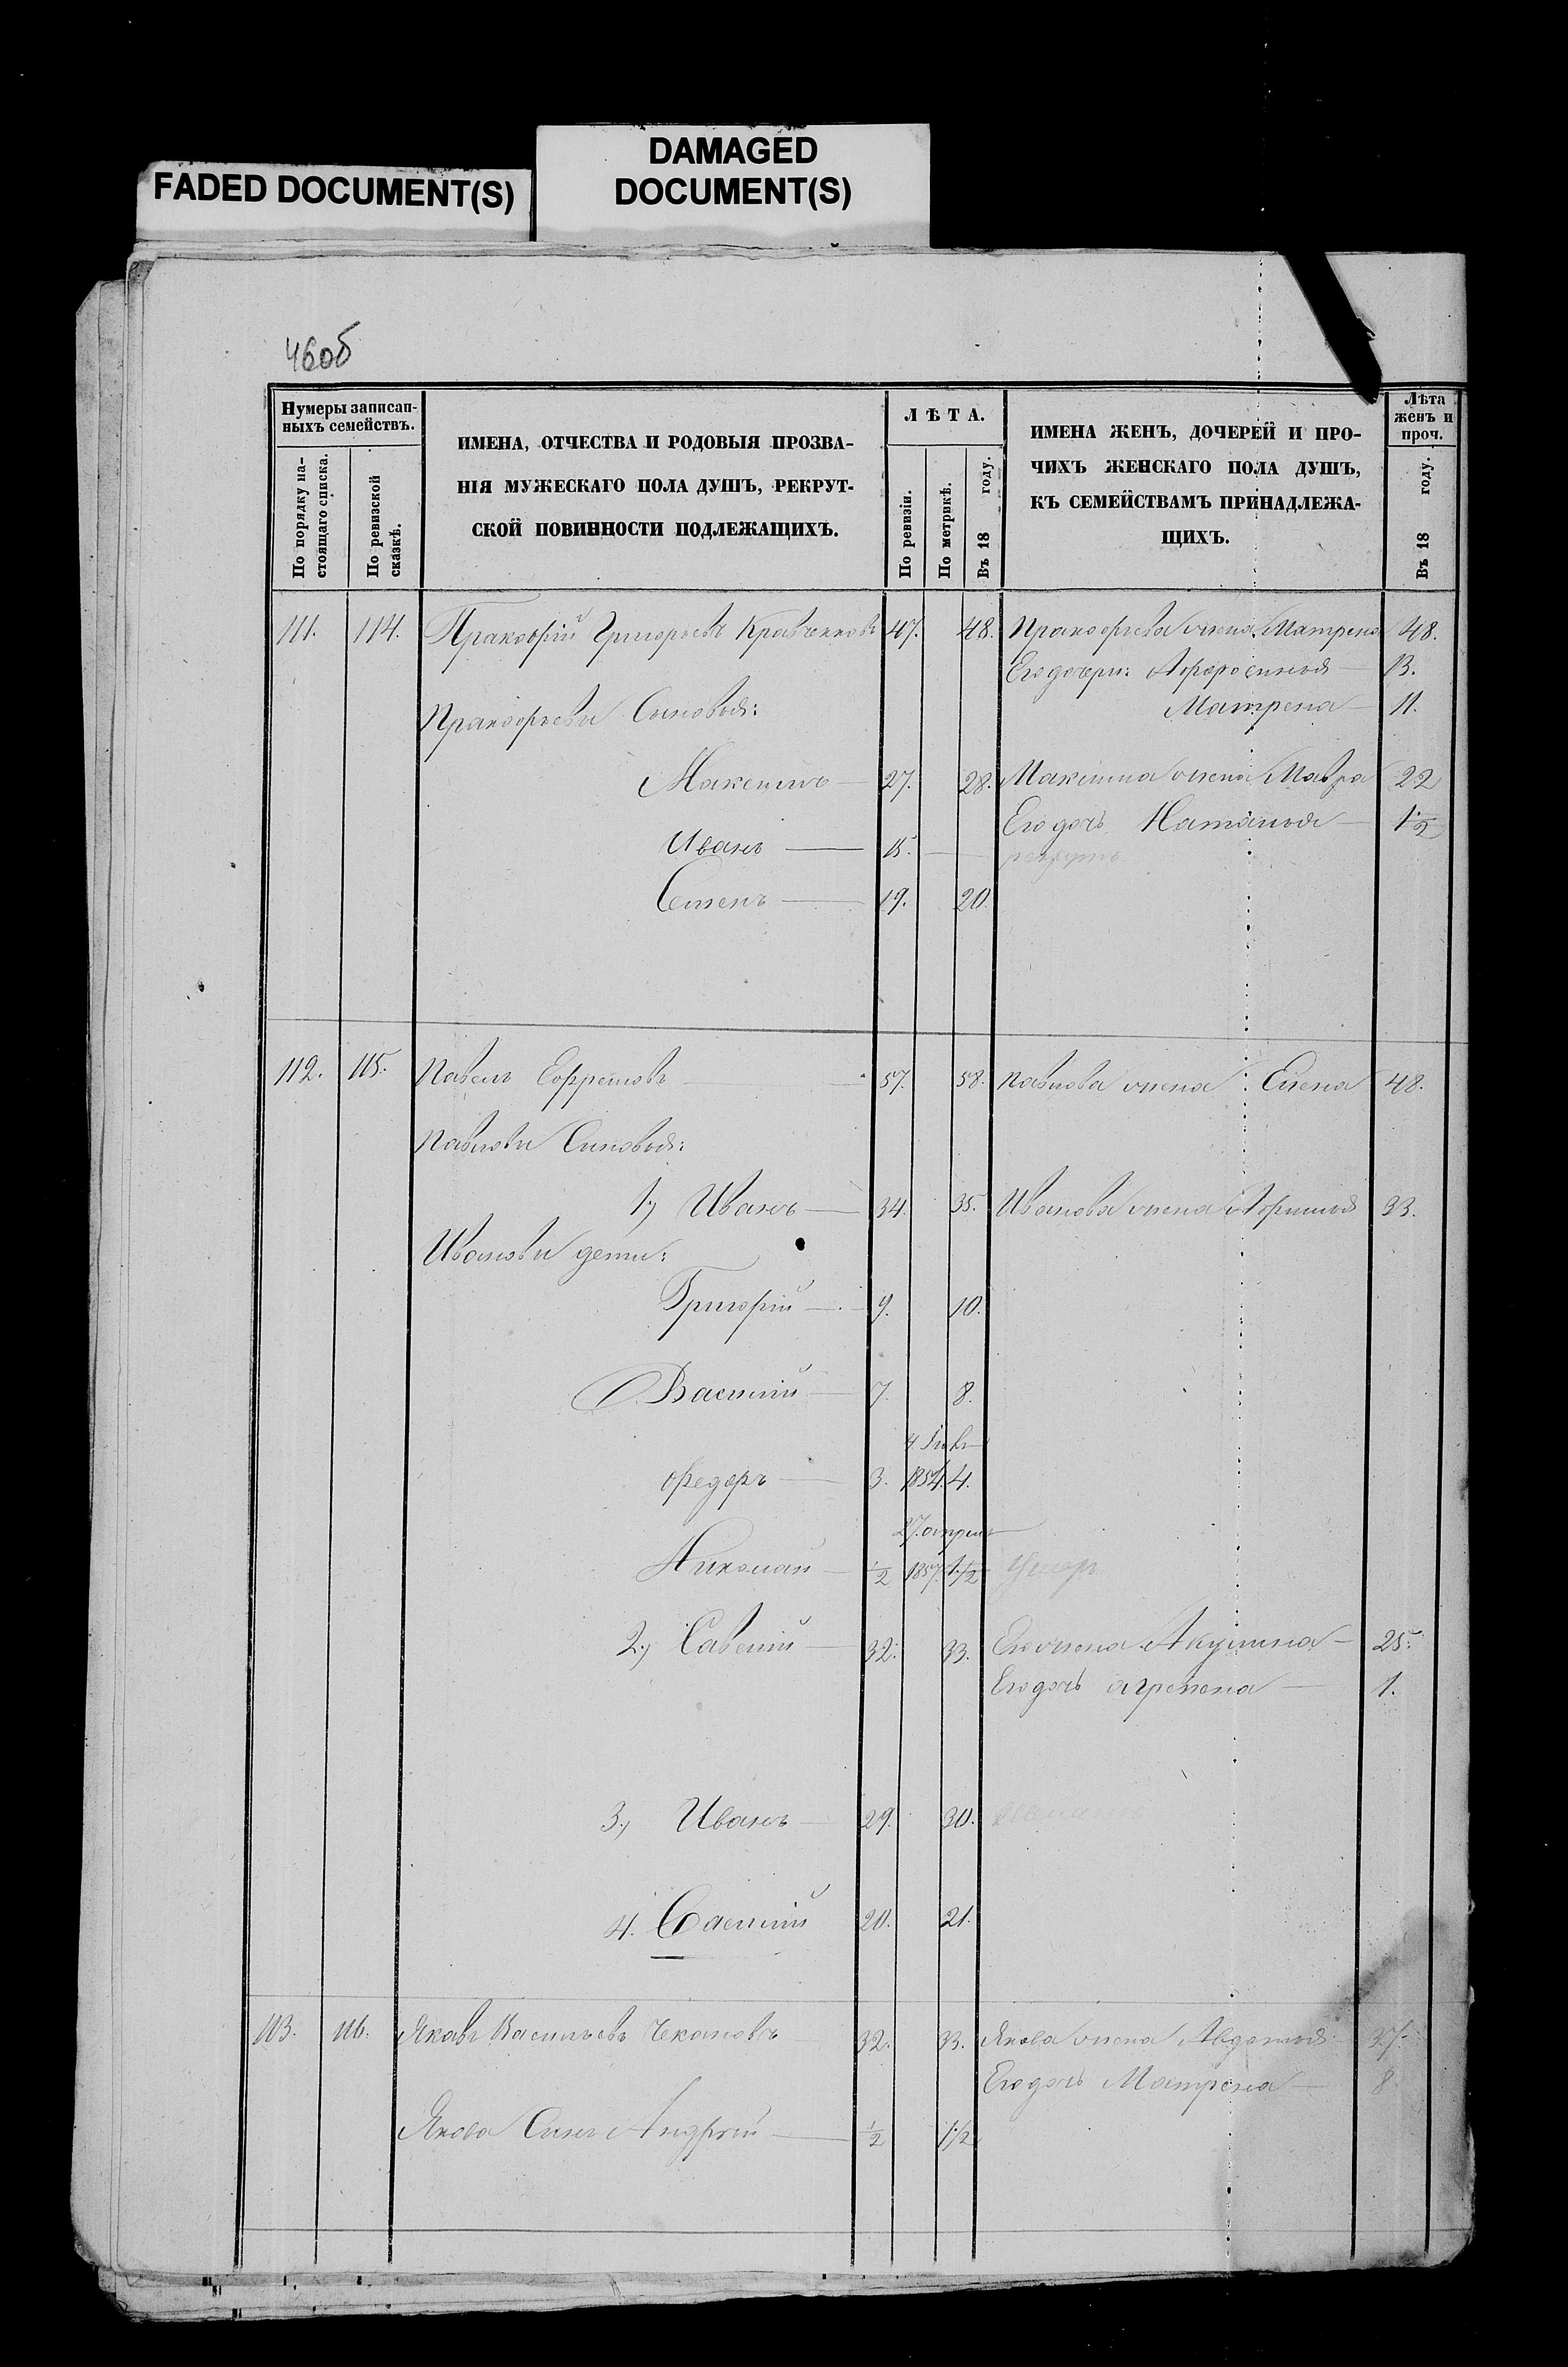 FADED DOCUMENT(S)
DAMAGED
DOCUMENT(S)
46об
Нумеры записан-
ныхъ семействъ.
По порядку на-
стоящаго списка.
По ревизской
сказкѣ.
ИМЕНА, ОТЧЕСТВА И РОДОВЫЯ ПРОЗВА-
НІЯ МУЖЕСКАГО ПОЛА ДУШЪ, РЕКРУТ-
СКОЙ ПОВИННОСТИ ПОДЛЕЖАЩИХЪ.
ЛѢТА.
По ревизіи.
По метрикѣ.
Въ 18 году.
ИМЕНА ЖЕНЪ, ДОЧЕРЕЙ И ПРО-
ЧИХЪ ЖЕНСКАГО ПОЛА ДУШЪ,
КЪ СЕМЕЙСТВАМЪ ПРИНАДЛЕЖА-
ЩИХЪ.
Лѣта
женъ и
проч.
Въ 18 году.
111. 114. Пракофій Григорьевъ Кравченковъ 47. 48. Пракофьева жена Матрена 48.
Его дочери: Афросинья 13.
Матрена 11.
Пракофьевы Сыновья:
Максимъ 27. 28. Максима жена Мавра 22
Его дочь Наталья 1 1/2
Иванъ 15. рекрутъ
Семенъ 19. 20.
112. 115. Павелъ Ефремовъ 57. 58. Павлова жена Елена 48.
Павловы Сыновья:
1) Иванъ 34. 35. Иванова жена Афимья 33.
Ивановы дети:
Григорій 9. 10.
Василий 7. 8.
4
Федоръ 3. 1854. 4.
27. апреля
Николай 1/2 1857. 1 1/2 Умеръ
2) Савелій 32. 33. Его жена Акулина 25.
Его дочь Агрепена 1.
3) Иванъ 29. 30.
4. Василій 20. 21.
113. 116. Яковъ Васильевъ Чекановъ 32. 33. Якова жена Авдотья 37.
Его дочь Матрена 8
Якова Сынъ Андрѣй 1/2 1 1/2